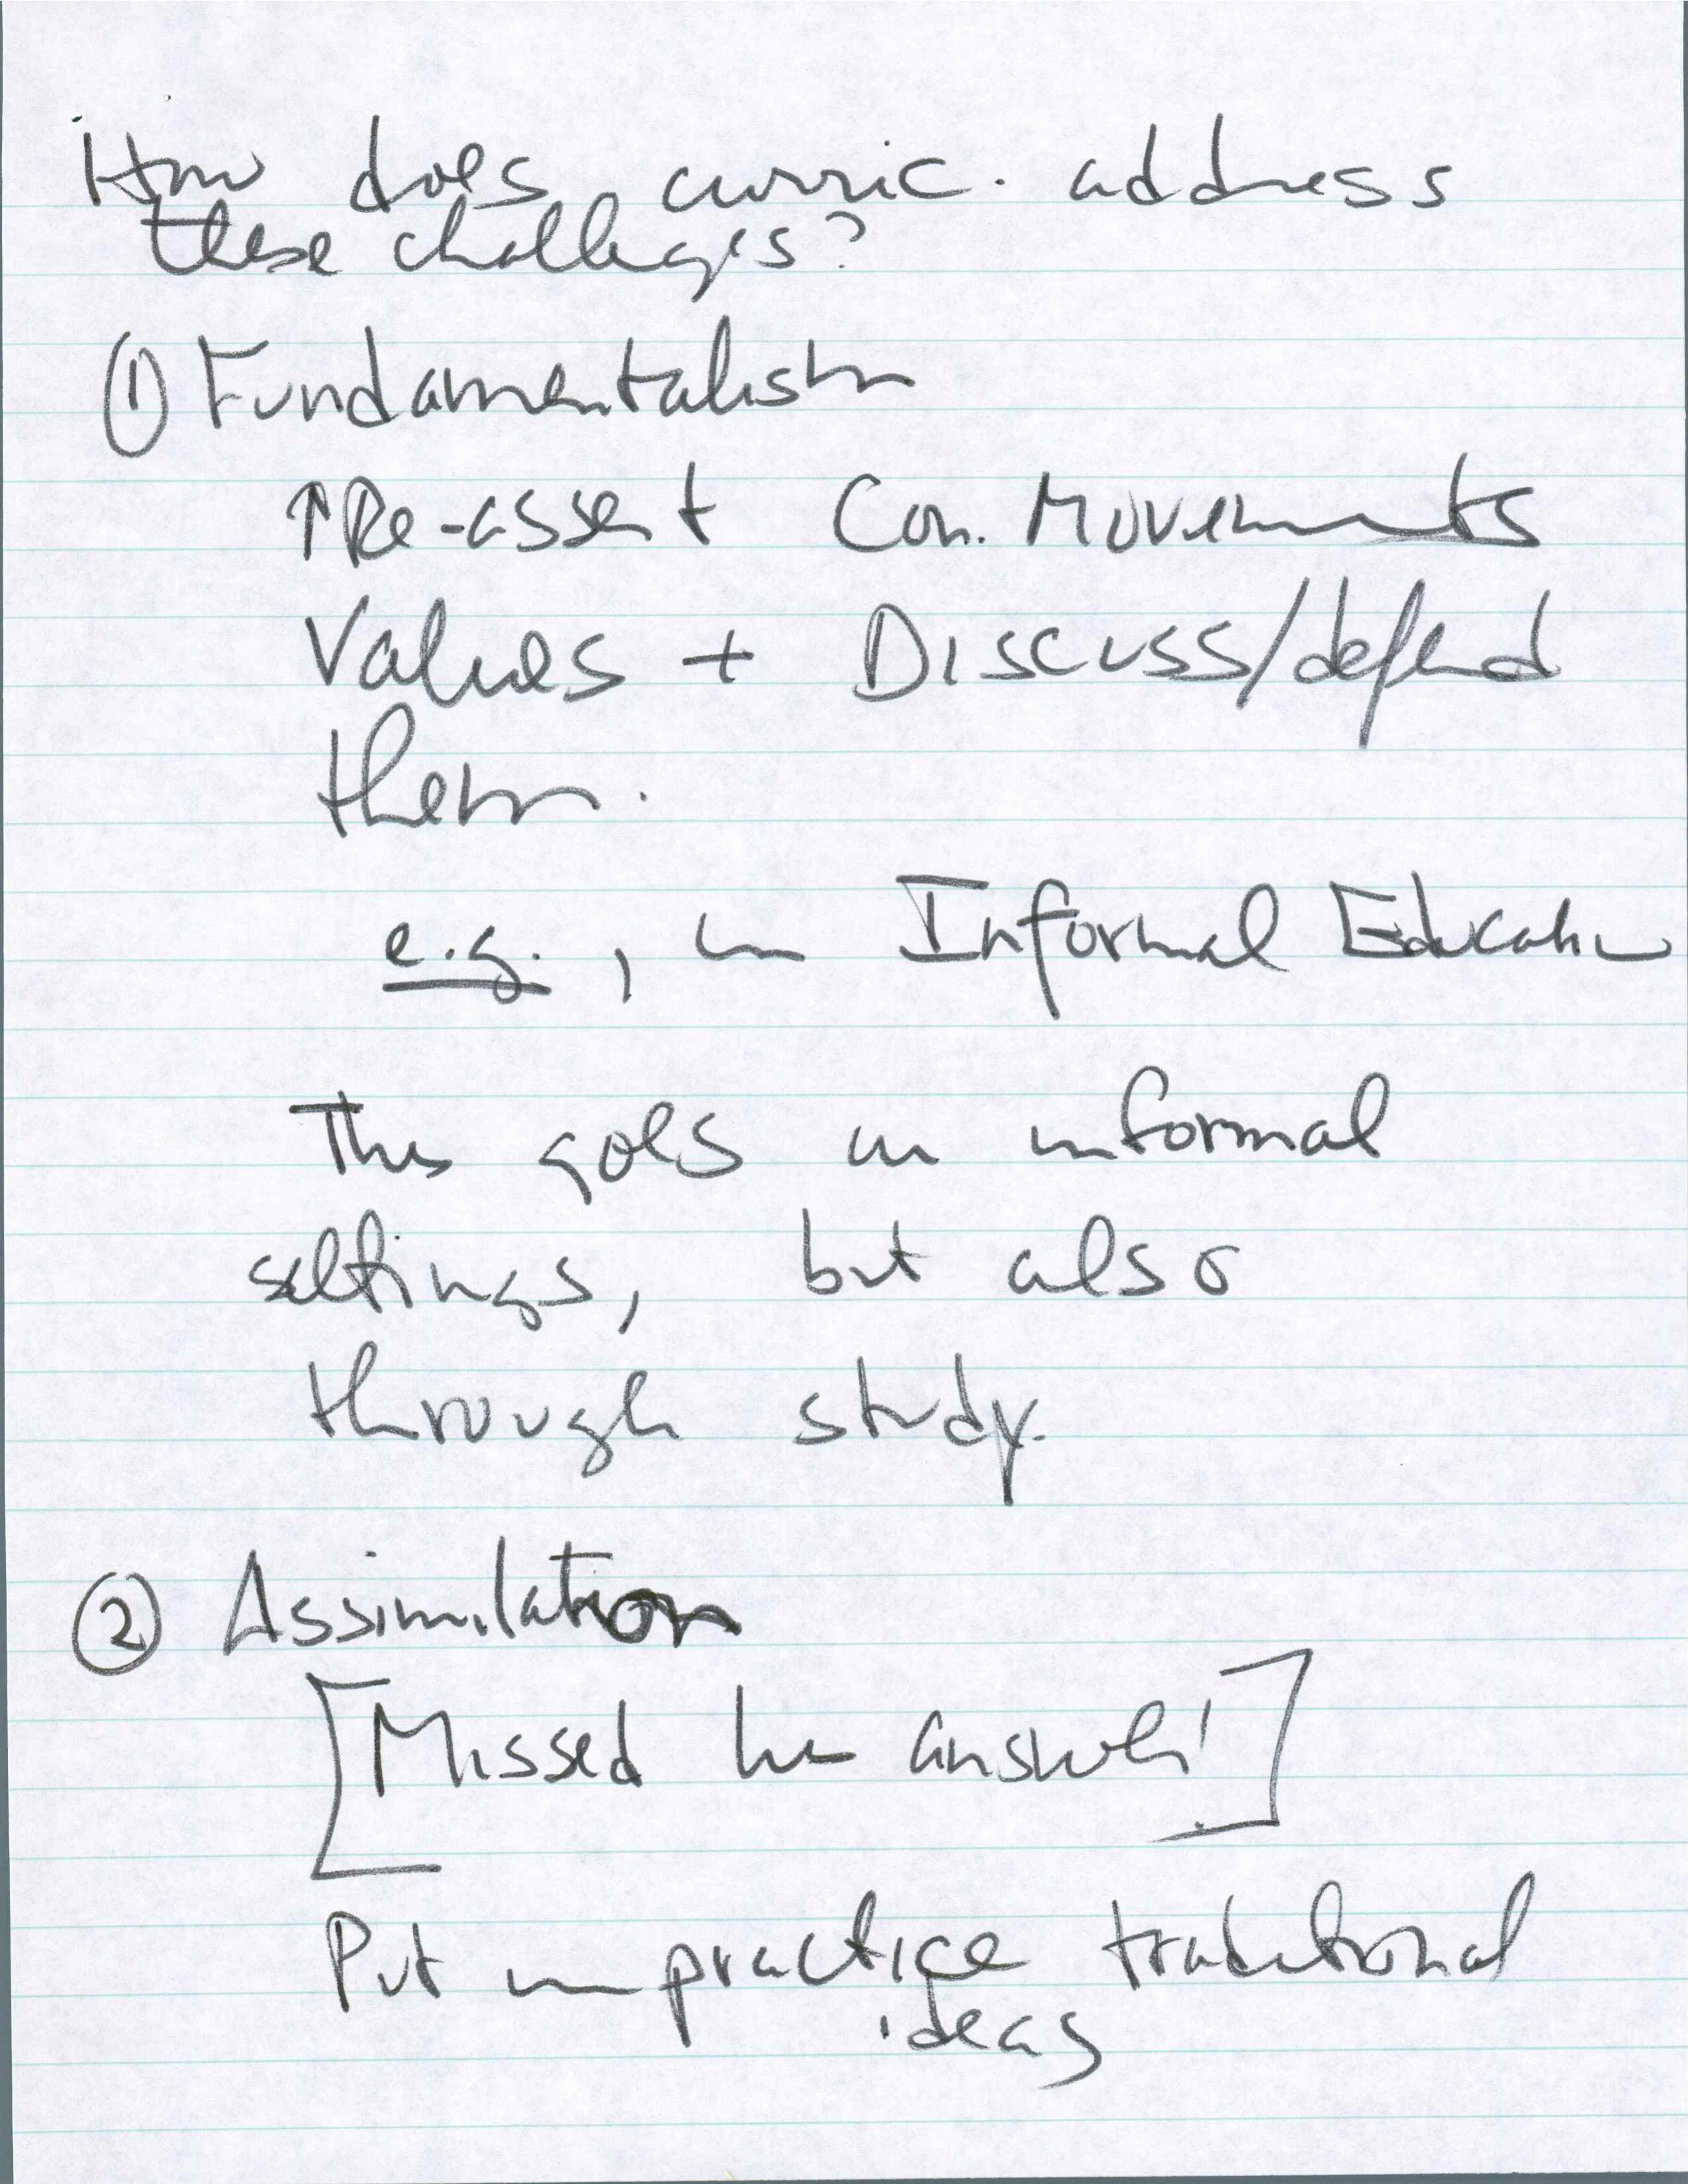 How does curric. address
these challenges?
① Fundamentalism
↑Re-assert Con. Movements
Values + Discuss/defend
them.
e.g., in Informal Education
This goes in informal
settings, but also
through study.
② Assimilation
[Missed his answer!]
Put in practice traditional
ideas